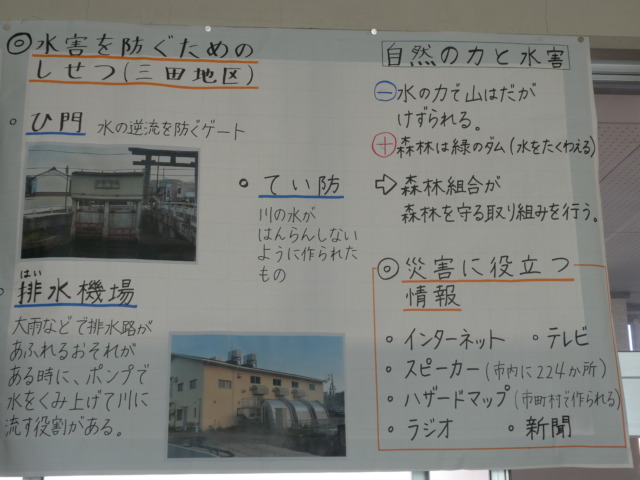 ◎水害を防ぐための
しせつ(三田地区)
○ ひ門 水の逆流を防ぐゲート
○ てい防
川の水が
はんらんしない
ように作られた
もの
○ 排水機場
はい
大雨などで排水路が
あふれるおそれが
ある時に、ポンプで
水をくみ上げて川に
流す役割がある。
自然の力と水害
⊖水の力で山はだが
けずられる。
⊕森林は緑のダム(水をたくわえる)
⇨森林組合が
森林を守る取り組みを行う。
◎災害に役立つ
情報
○ インターネット ○ テレビ
○ スピーカー(市内に224か所)
○ ハザードマップ(市町村で作られる)
○ ラジオ ○ 新聞